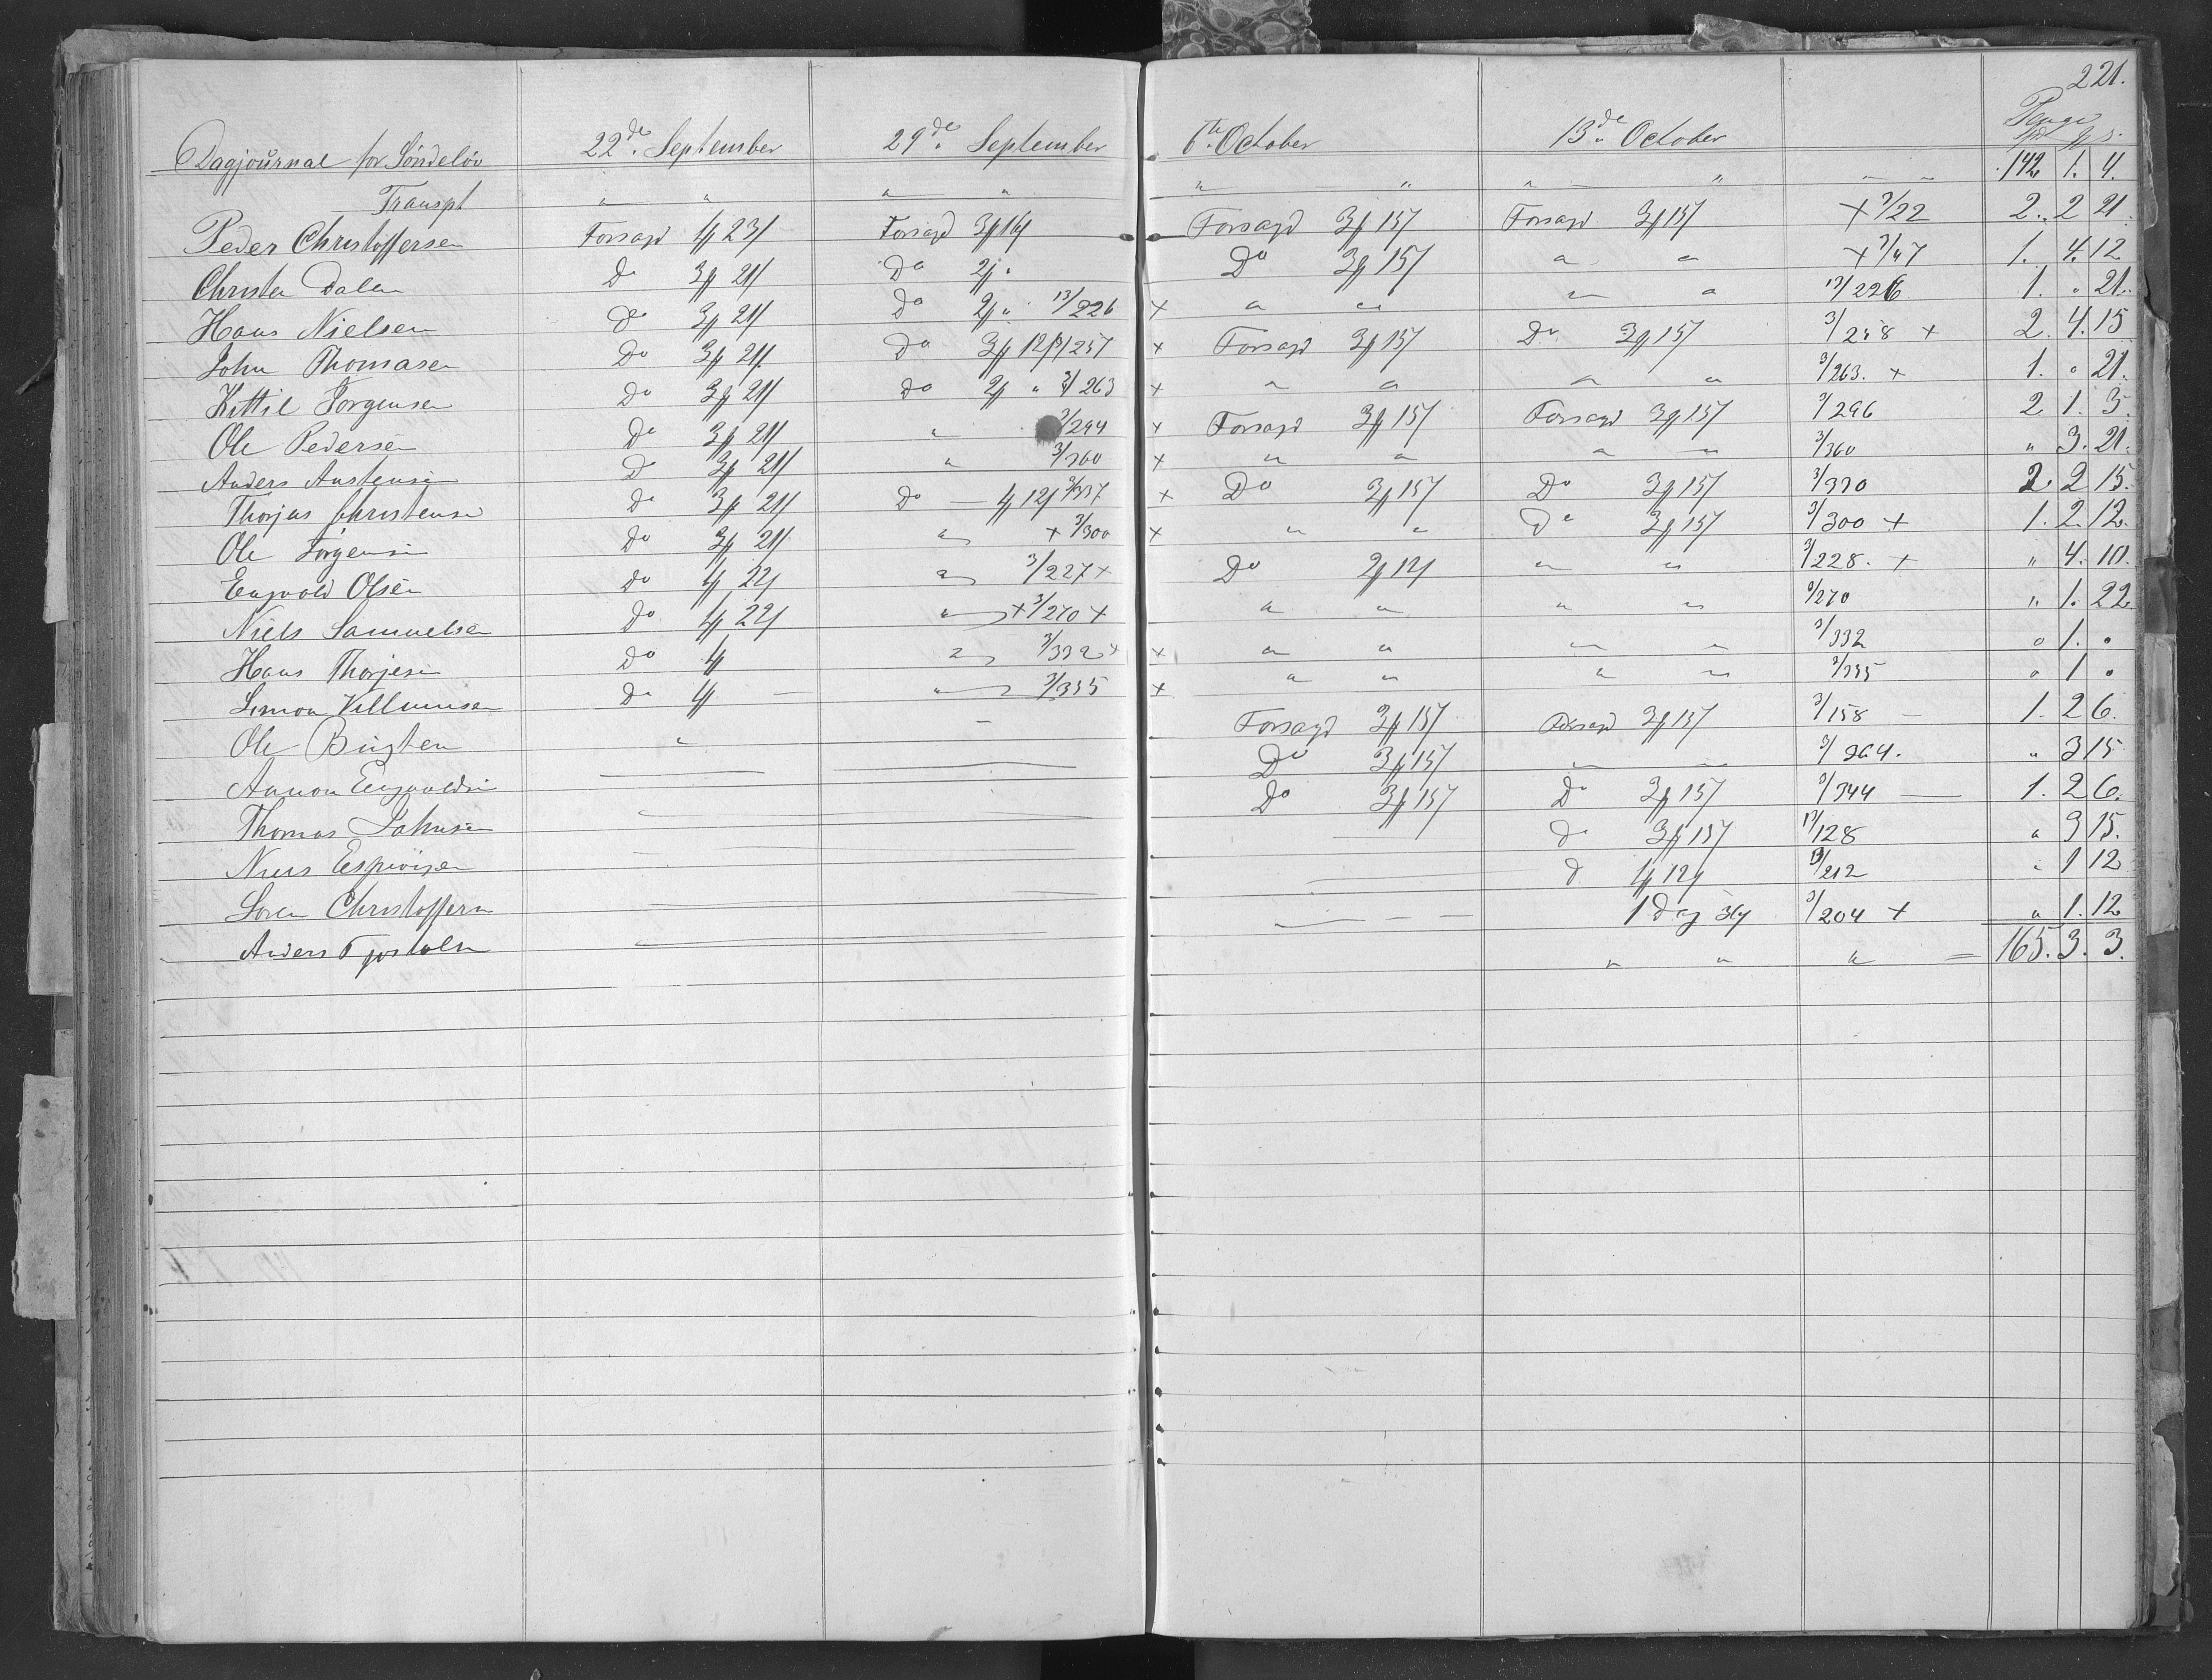 221.
Dagjournal for Søndeløv 22de September 29de September 6te October 13de October Penge
Transpt " " " " " " " " " " 142. 1. 4.
Peder Christoffersen Forsagd 4 23 Forsagd 3 16 Forsagd 3 15 Forsagd 3 15 + 3/22 2. 2 21.
Christen Dalen Do 3 21 Do 2 " Do 3 15 " " + 3/47 1. 4. 12
Hans Nielsen Do 3 21 Do 2 " 13/226 + " " " " 13/226 1. " 21.
John Thomasen Do 3 21 Do 3 12 3/257 + Forsagd 3 15 Do 3 15 3/258 + 2. 4. 15
Kittil Jørgensen Do 3 21 Do 2 " 3/263 + " " " " 3/263. + 1. " 21.
Ole Pedersen Do 3 21 " 3/294 + Forsagd 3 15 Forsagd 3 15 3/296 2 1. 3.
Anders Austensen Do 3 21 " 3/360 + " " " " 3/360 " 3. 21.
Thorjus Christensen Do 3 21 Do 4 12 3/337 + Do 3 15 Do 3 15 3/330 2. 2 15.
Ole Jørgensen Do 3 21 " + 3/300 + " " Do 3 15 3/300 + 1. 2. 12.
Engvold Olsen Do 4 22 " 3/227 + Do 2 12 " " 3/228. + " 4. 10.
Niels Samuelsen Do 4 22 " + 3/270 + " " " " 3/270 " 1. 22
Hans Thorjesen Do 4 " 3/332 + + " " " " 3/332 " 1. "
Simon Villumsen Do 4 " 3/335 + " " " " 3/335 " 1 "
Ole Bugten " Forsagd 3 15 Forsagd 3 15 3/158 1. 2 6.
Aanon Engvoldsen Do 3 15 3/264. " 3 15
Thomas Johnsen Do 3 15 Do 3 15 3/344 1. 2 6.
Niels Do 3 15 13/128 " 3 15.
Søren Christoffersen Do 4 12 13/212 " 1 12
Anders Tjostolsen 1 Dag 3/204 + " 1. 12
" " " 165. 3. 3.